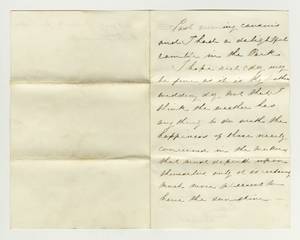 Last evening
and I had a delightful
ramble in the Park.
I hope next day may
be fine as it is the
wedding day not that I
think the weather has
anything to do with the
happiness of those newly
concerned in the matter
that must depend upon
themselves only it is
much more pleasant to
have the sunshine —